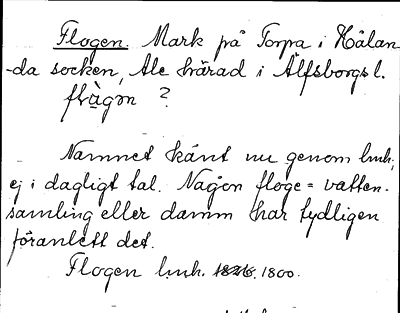 Flogen. Mark på Torpa i Hålan
-da socken, Ale härad i Älfsborgs l.
flɷ̀gɷn ?
Namnet känt nu genom lmh.,
ej i dagligt tal. Någon floge = vatten-
samling eller damm har tydligen
föranlett det.
Flogen lmh. 1826. 1800.